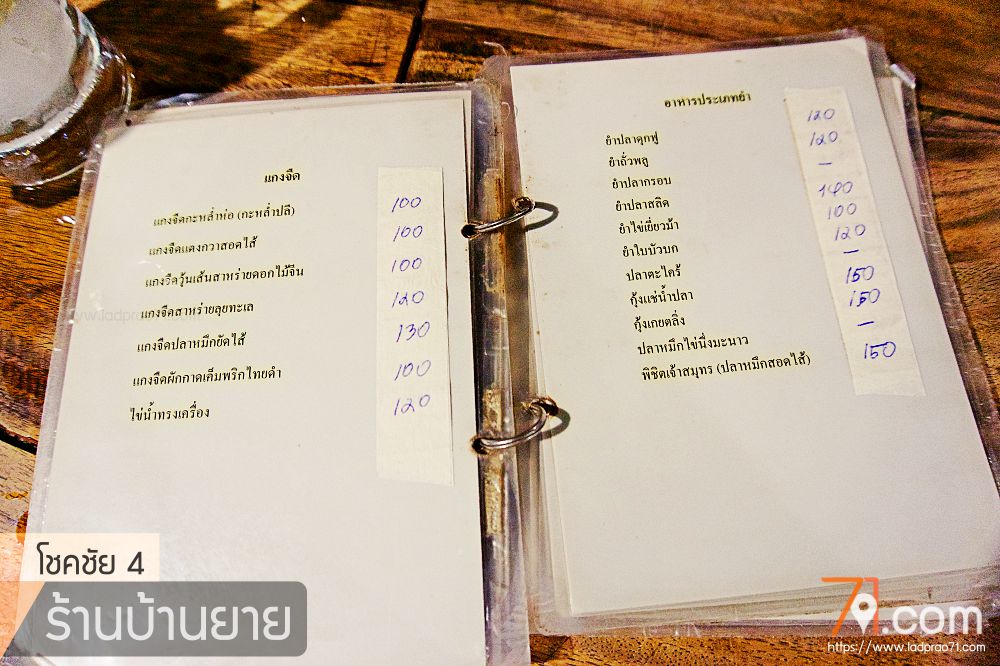 แกงจืด
แกงจืดกะหล่ำห่อ (กะหล่ำปลี) 100
แกงจืดแตงกวาสอดไส้ 100
แกงจืดวุ้นเส้นสาหร่ายดอกไม้จีน 100
แกงจืดสาหร่ายลุยทะเล 120
แกงจืดปลาหมึกยัดไส้ 130
แกงจืดผักกาดเค็มพริกไทยดำ 100
ไข่น้ำทรงเครื่อง 120
อาหารประเภทยำ
ยำปลาดุกฟู 120
ยำถั่วพลู 120
ยำปลากรอบ –
ยำปลาสลิด 140
ยำไข่เยี่ยวม้า 100
ยำใบบัวบก 120
ปลาตะไคร้ –
กุ้งแช่น้ำปลา 150
กุ้งเกยตลิ่ง 150
ปลาหมึกไข่นึ่งมะนาว –
พิชิตเจ้าสมุทร (ปลาหมึกสอดไส้) 150
โชคชัย 4
ร้านบ้านยาย
71.com
https://www.ladprao71.com